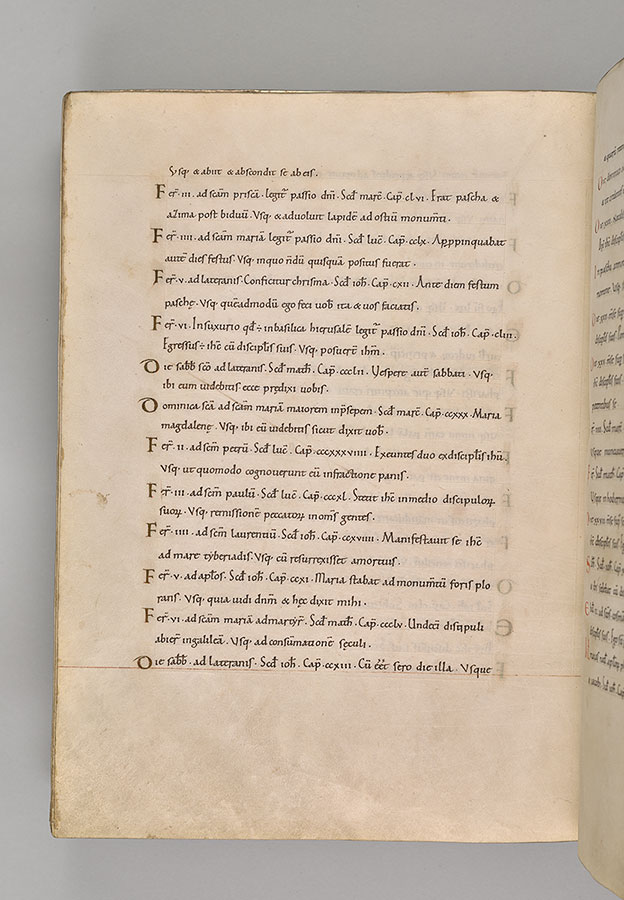 Vsq· & abiit & abscondit se ab eis.
Fer̄·III·ad sc̄am priscā·legit̄ passio dn̄i·Scd̄ marc̄·Cap̄·cLvi·Erat pascha &
azima post biduū·Vsq· & aduoluit lapidē ad ostiū monum̄ti·
Fer̄·IIII·ad sc̄am mariā legit̄ passio dn̄i·Scd̄ luc̄·Cap̄·ccLx·Appinquabat
autē dies festus·Vsq· in quo n̄dū quisquā positus fuerat·
Fer̄·V·ad lateranis·Conficitur chrisma·Scd̄ ioh̄·Cap̄·cxii·Ante diem festum
paschę·Vsq· quēadmodū ego feci uob̄ ita & uos faciatis·
Fer̄·VI·In suxurio qd̄ ÷ in basilica hierusalē legit̄ passio dn̄i·Scd̄ ioh̄·Cap̄·cLiii·
Egressus ÷ ih̄c cū disciplīs suis·Vsq· posuer̄t ih̄m·
Die sabb̄ sc̄o ad lateranis·Scd̄ math̄·Cap̄·cccLii·Vespere autē sabbati·Vsq·
ibi eum uidebitis ecce predixi uobis·
Dominica sc̄a ad sc̄am mariā maiorem in p̄sepem·Scd̄ marc̄·Cap̄·ccxxx·Maria
magdalenę·Vsq· ibi eū uidebitis sicut dixit uob̄·
Fer̄·II·ad sc̄m petrū·Scd̄ luc̄·Cap̄·cccxxxviiii·Exeuntes duo ex disciplīs ih̄u·
Vsq· ut quomodo cognouerunt eū in fractione panis·
Fer̄·III·ad sc̄m paulū·Scd̄ luc̄·Cap̄·cccxL·Stetit ih̄c in medio discipuloꝝ
suoꝝ·Vsq· remissionē peccatoꝝ in om̄s gentes·
Fer̄·IIII·ad sc̄m laurentiū·Scd̄ ioh̄·Cap̄·ccxviiii·Manifestauit se ih̄c
ad mare tyberiadis·Vsq· cū resurrexisset a mortuis·
Fer̄·V·ad aplōs·Scd̄ ioh̄·Cap̄·ccxi·Maria stabat ad monum̄tū foris plo
rans·Vsq· quia uidi dn̄m & hęc dixit mihi·
Fer̄·VI·ad sc̄am mariā ad martyr̄·Scd̄ math̄·Cap̄·cccLv·Undeci discipuli
abier̄ in galileā·Vsq· ad consūmationē sęculi·
Die sabb̄·ad lateranis·Scd̄ ioh̄·Cap̄·ccxiii·Cū eēt sero die illa·Vsque